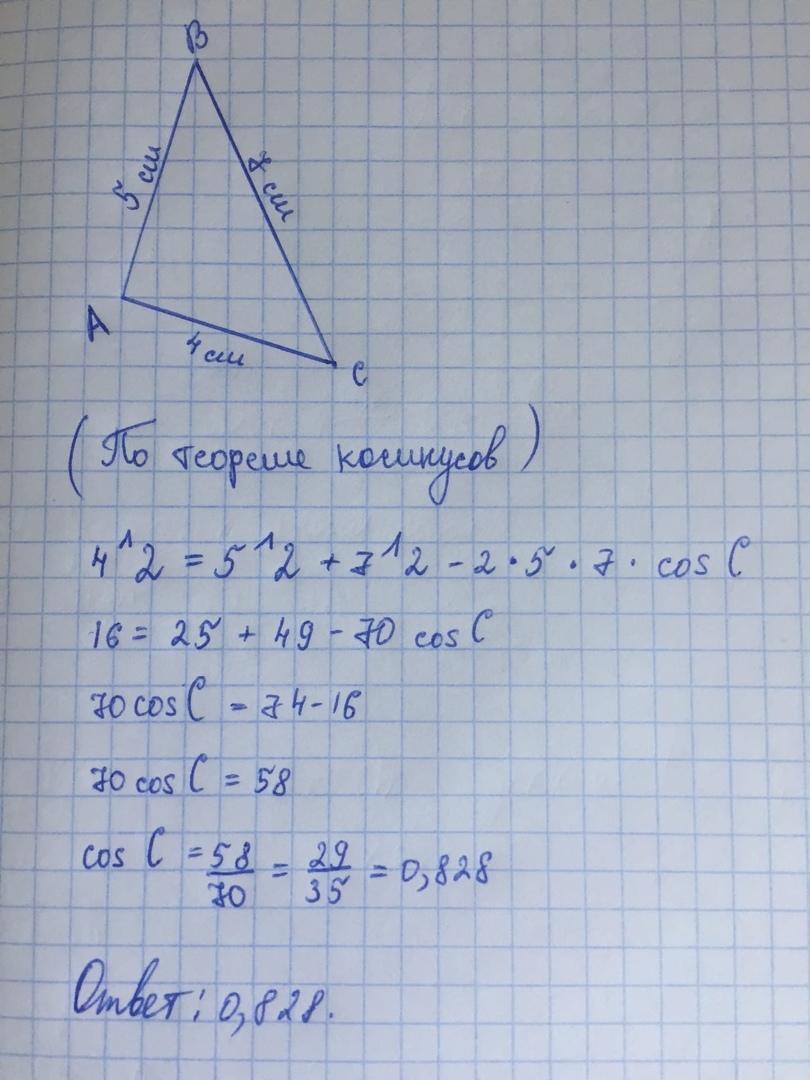 B
5 см
7 см
A
4 см
C
(По теореме косинусов)
4^2 = 5^2 + 7^2 - 2 · 5 · 7 · cos C
16 = 25 + 49 - 70 cos C
70 cos C = 74 - 16
70 cos C = 58
cos C = 58/70 = 29/35 = 0,828
Ответ: 0,828.